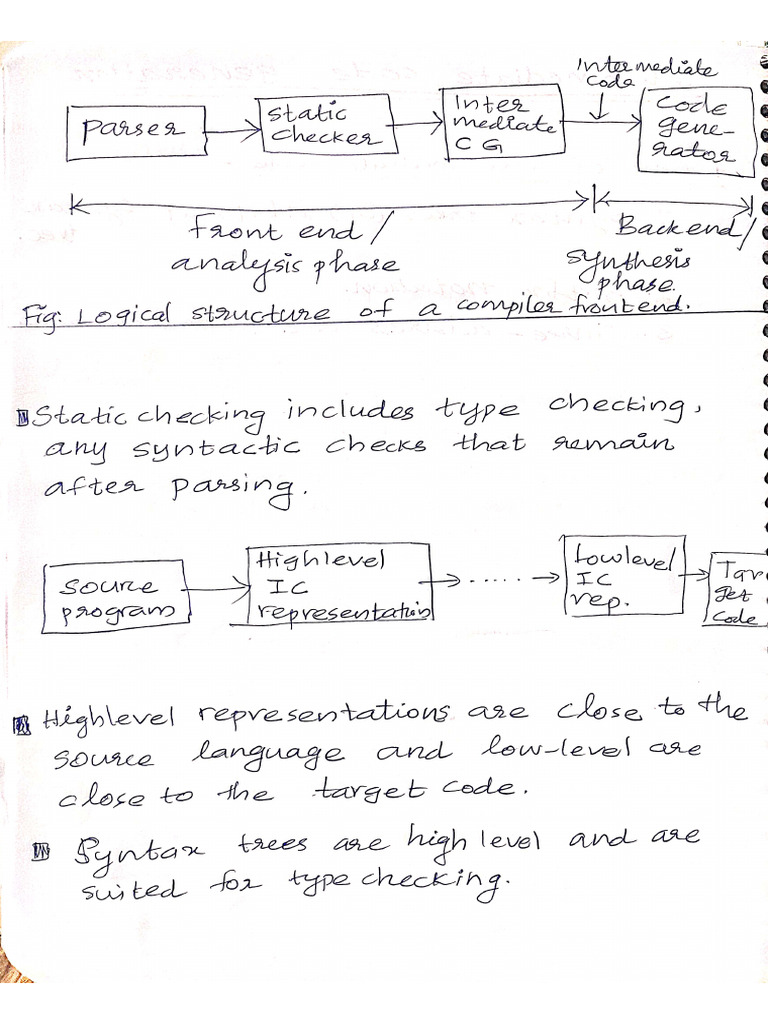 Intermediate
code
Parser
Static
checker
Inter
mediate
CG
Code
gene-
rator
Front end /
analysis phase
Backend/
synthesis
phase.
Fig: Logical structure of a compiler frontend.
Static checking includes type checking,
any syntactic checks that remain
after parsing.
Source
program
High level
IC
representation
......
Low level
IC
rep.
Tar
get
code
Highlevel representations are close to the
source language and low-level are
close to the target code.
Syntax trees are high level and are
suited for type checking.